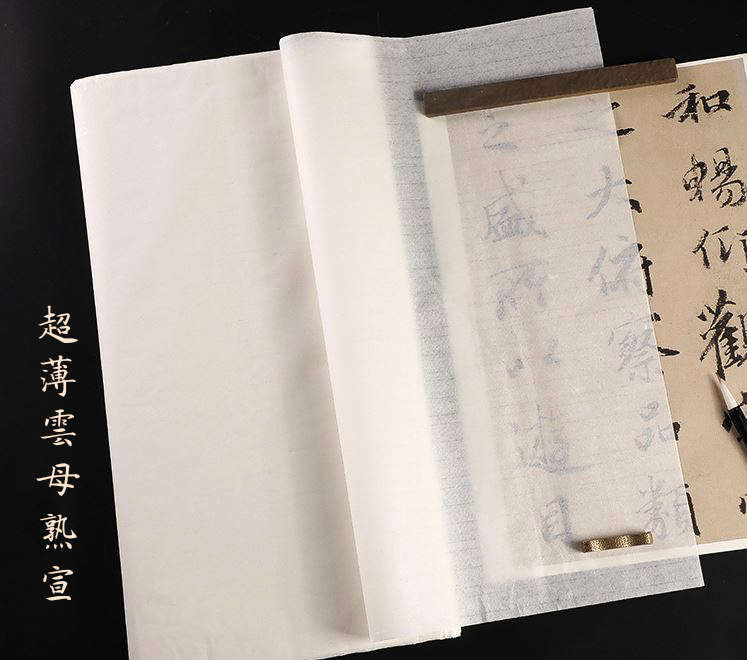 和暢仰觀
之大俯察品類
之盛所以遊目
超薄雲母熟宣